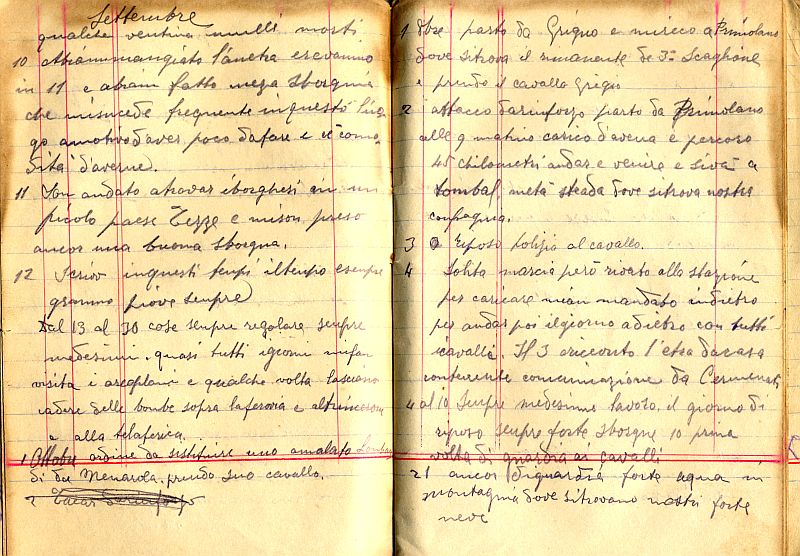 Settembre
qualche ventina mulli morti
10 Abiam mangiato l'ancha eravamo
in 11 e abiam fatto mezza sborgnia
che misucede frequente inquesto luo
go amotivo d'aver poco dafare e è como
dita d'averne.
11 Son andato atrovar iborghesi in un
picolo paese Tezze e mison preso
ancor una buona sborgna.
12 Scrivo inquesti tempi iltempo esempre
piove sempre
Dal 13 al 30 cose senpre regolare senpre
medesimi. quasi tutti igiorni
visita i areoplani e qualche volta lasciano
cadere delle bombe sopra laferovia e
e alla telaferica.
1 Ottobre ordine da sostituire uno amalato
di da Menarola. prendo suo cavallo.
2
1 dbre parto da Grigno e mireco a Primolano
dove sitrova il rimanente de 3º Scaglione
e prendo il cavallo Grigio
2 attacco darinforzo parto da Primolano
alle 9 matino carico d'avena e percoso
45 chilometri andar e venire e siva a
Lombal, metà strada dove sitrova nostra
compagnia.
3 Riposo polizia al cavallo.
4 Solita marcia però rivato alla stazione
per caricare mian mandato indietro
per andar poi ilgiorno adietro con tutti
icavalli. Il 3 ariccento l'etra dacasa
contenente comunicazione da
4 al 10 Senpre medesimo lavoro, il giorno di
riposo senpre forte sborgne 10 prima
volta di guardia ai cavalli
21 ancor diguardia forte aqua in
montagnia dove sitrovano nostri forte
neve